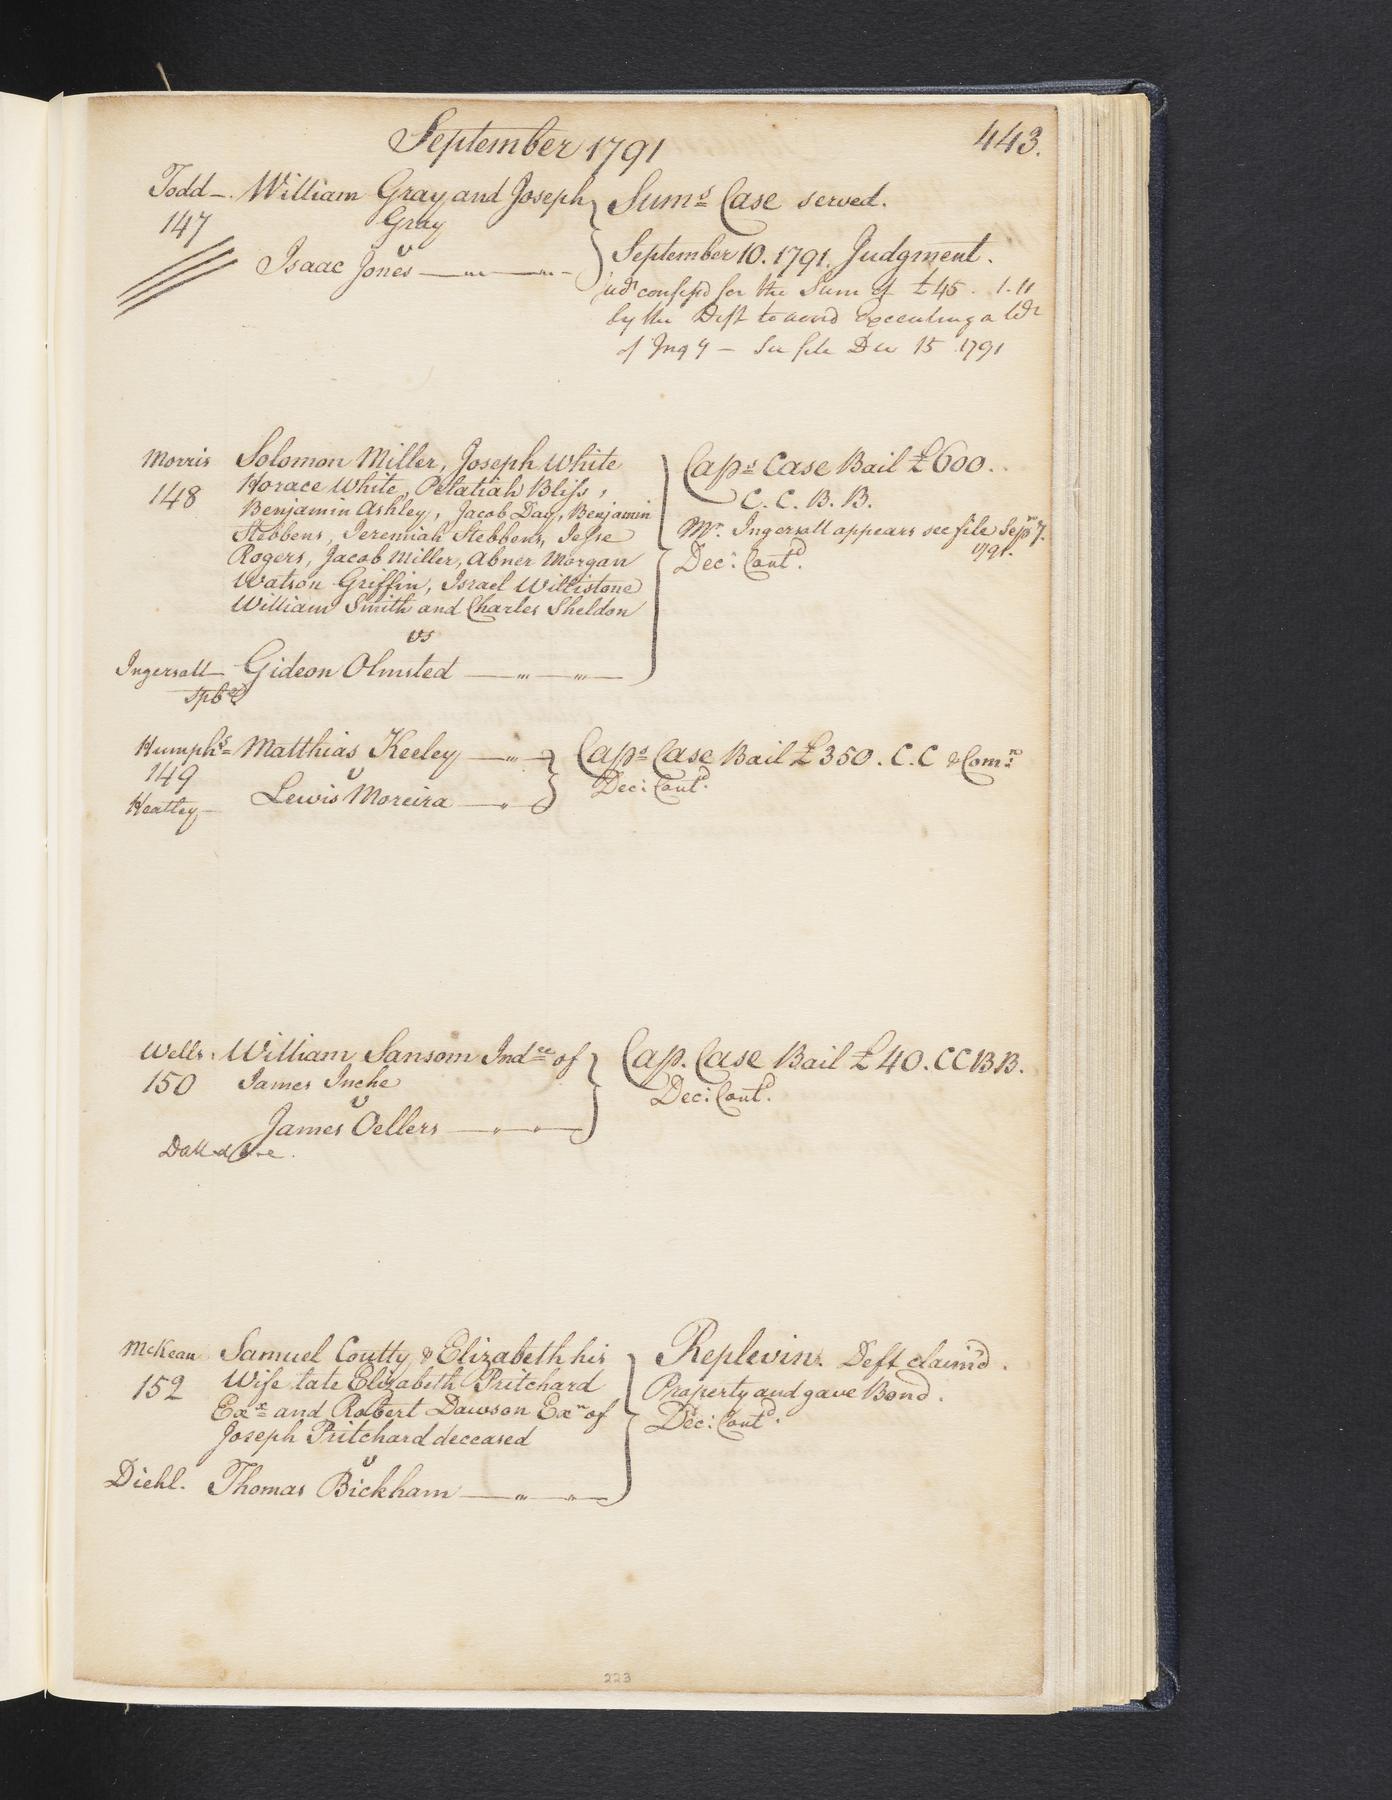 September 1791 443.
Todd —. William Gray and Joseph Sums Case served.
147 Gray
v September 10. 1791. Judgment.
Isaac Jones
Judt confess'd for the Sum of £45 . 1. 11
by the Deft to avoid Executing a Wr
of Inqy — See file Dec 15 1791
Morris Solomon Miller, Joseph White Caps Case Bail £600.
148 Horace White, Pelatiah Bliss, C. C. B. B.
Benjamin Ashley, Jacob Day, Benjamin Mr. Ingersoll appears see file Sepr 7.
Stebbens, Jeremiah Stebbens, Jesse 1791.
Rogers, Jacob Miller, Abner Morgan Dec: Contd.
Watson Griffin, Israel Willistone
William Smith and Charles Sheldon
vs
Ingersoll — Gideon Olmsted
Humphs Matthias Keeley Caps Case Bail £350. C.C & Comn
149 v Dec: Contd.
Heatley — Lewis Moreira
Wells. William Sansom Indee of Cap. Case Bail £40. CCBB.
150 James Inche Dec: Contd.
v
James Oellers
McKean Samuel Coutty & Elizabeth his Replevin. Deft claim'd.
152 Wife late Elizabeth Pritchard Property and gave Bond.
Exx and Robert Dawson Exn of Dec: Contd.
Joseph Pritchard deceased
v
Diehl. Thomas Bickham
223